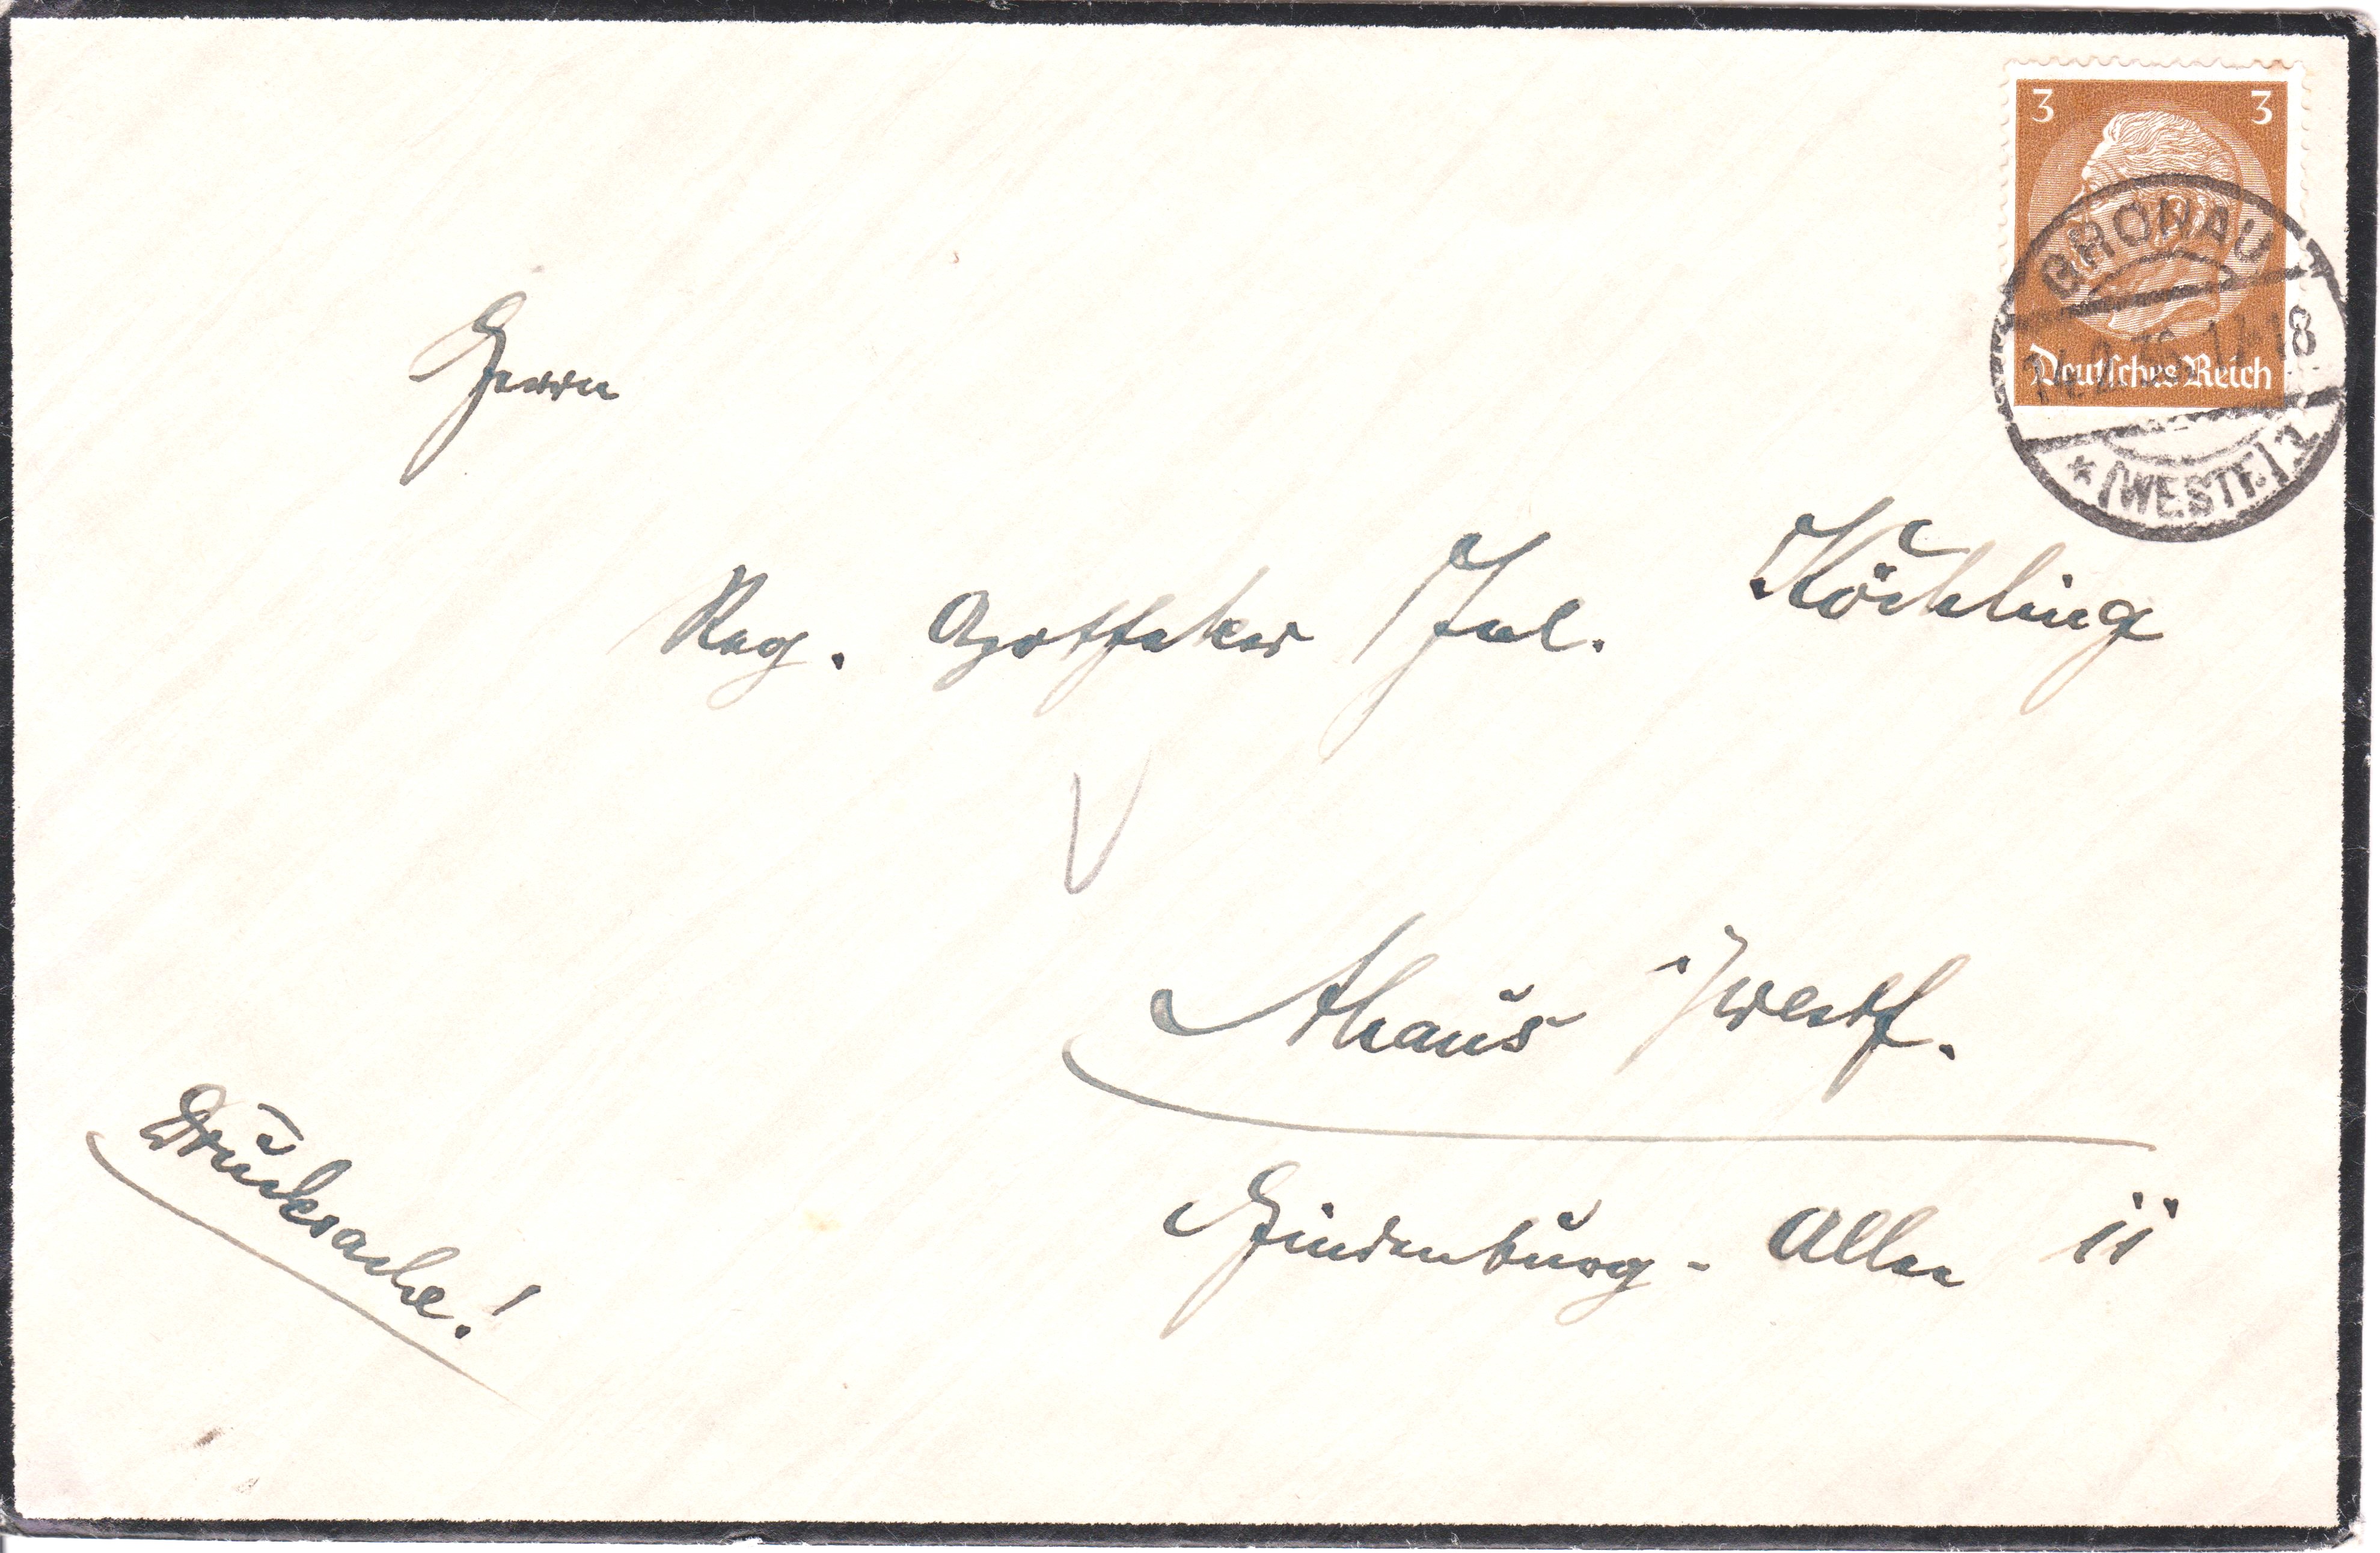 3 3
Deutsches Reich
GRONAU
17-18
* (WESTF.)
Herrn
Reg. Apotheker Jul. Köchling
Ahaus i/Westf.
Hindenburg-Allee 11
Drucksache!